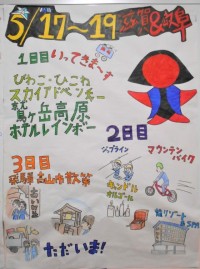 5/17〜19 滋賀&岐阜
1日目 いってきます
びわこ・ひこね
スカイアドベンチャー
鷲ヶ岳高原
ホテルレインボー
2日目
ジップライン
マウンテン
バイク
キャンドル
オルゴール
3日目
飛騨高山市散策
ただいま!